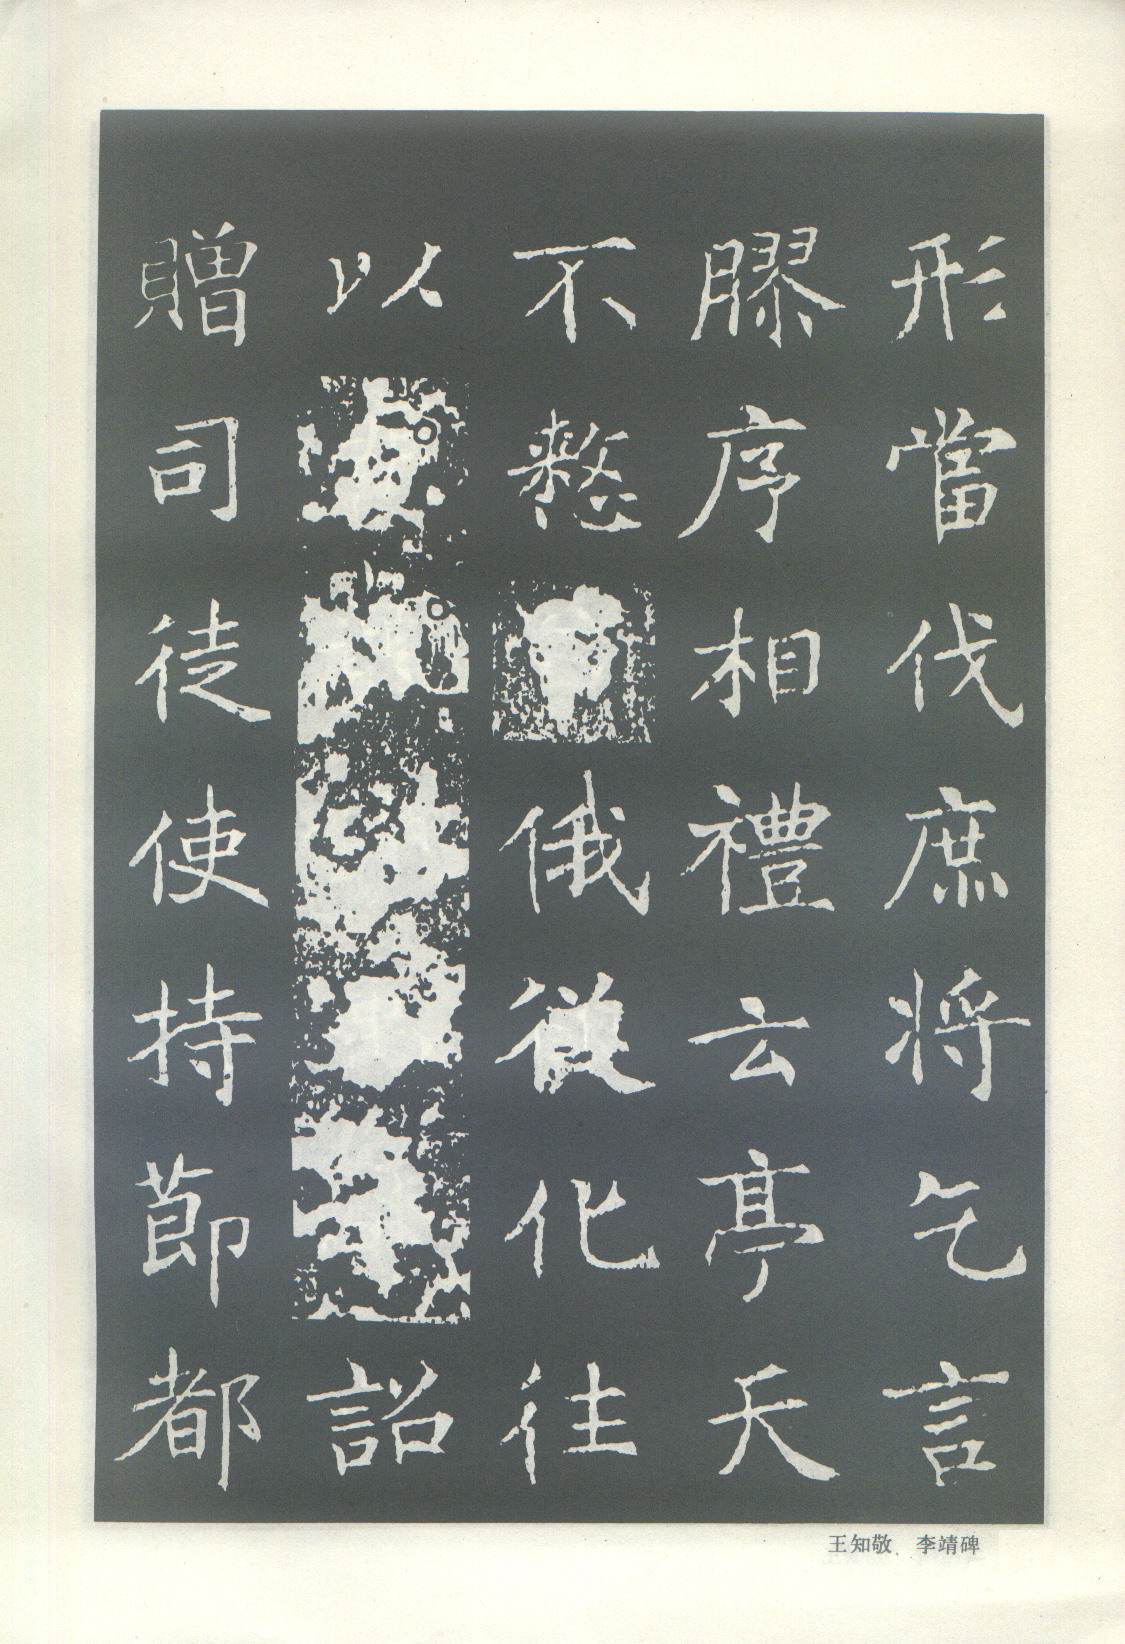 形當伐庶將乞言
膠序相禮云亭天
不憗俄從化往
以詔
贈司徒使持節都
王知敬、李靖碑